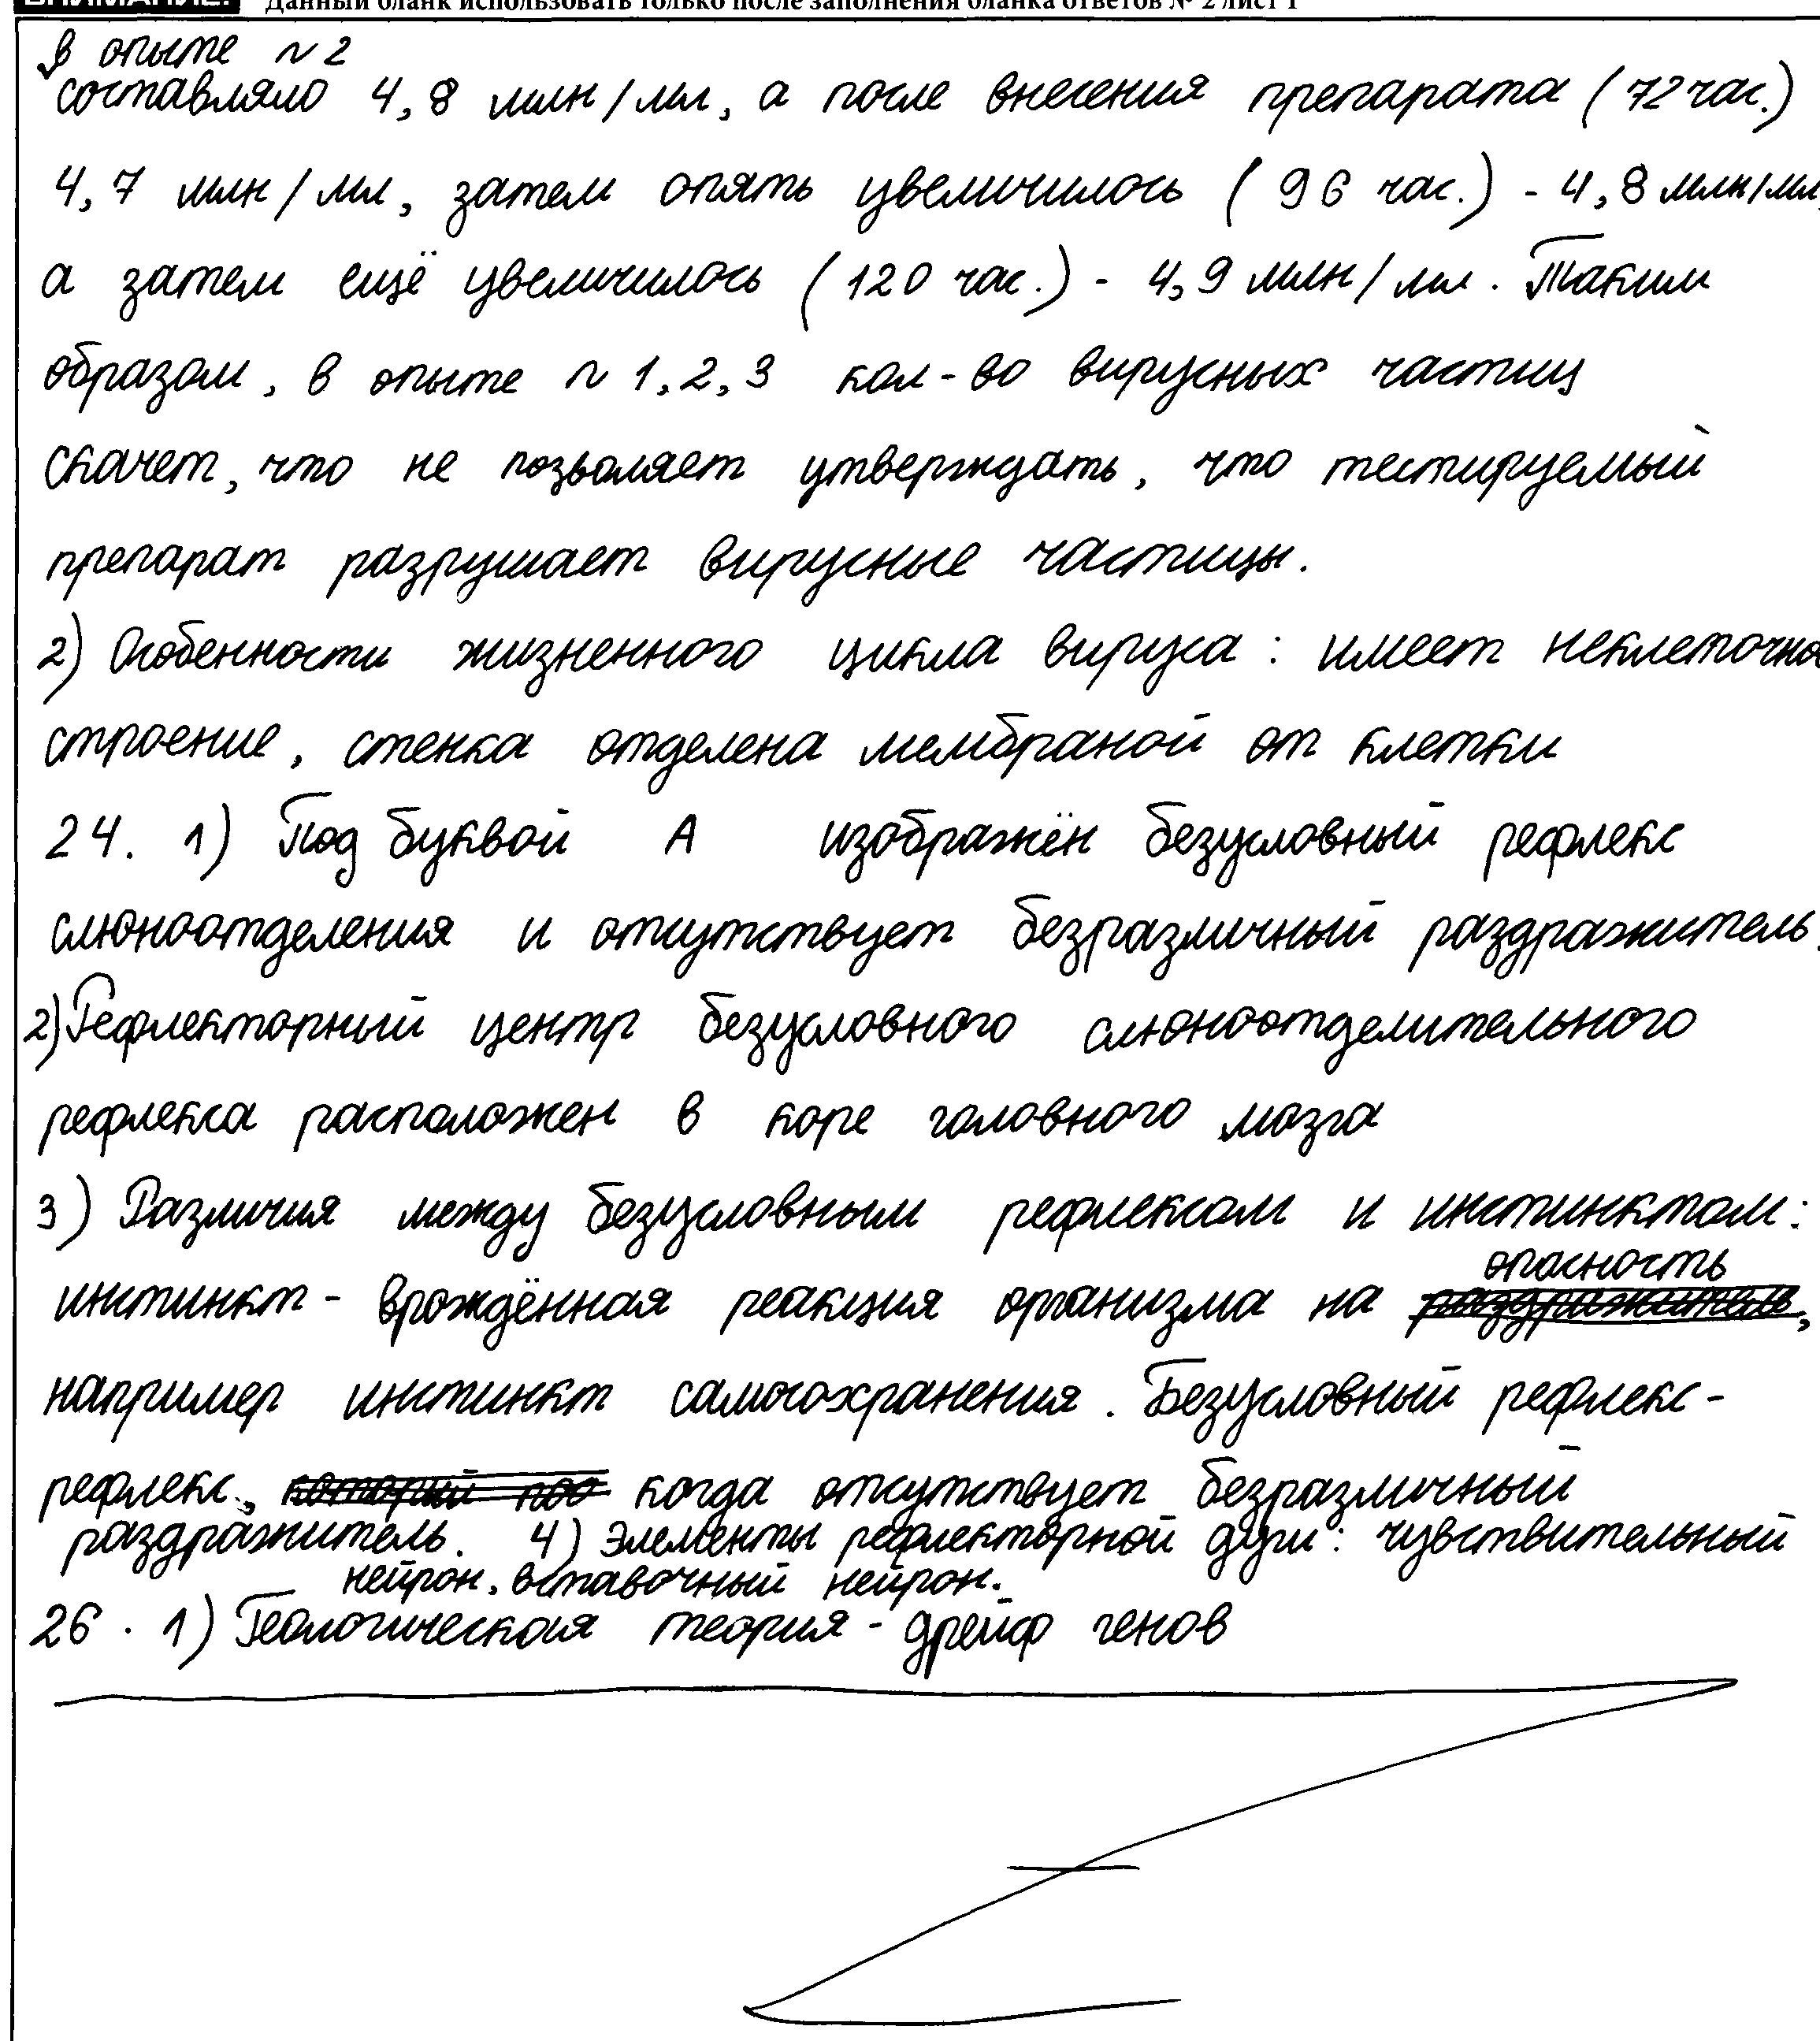 ВНИМАНИЕ! Данный бланк использовать только после заполнения бланка ответов № 2 лист 1
в опыте № 2
составляло 4,8 млн/мл, а после внесения препарата (72 час.)
4,7 млн/мл, затем опять увеличилось (96 час.) - 4,8 млн/мл,
а затем ещё увеличилось (120 час.) - 4,9 млн/мл. Таким
образом, в опыте № 1,2,3 кол-во вирусных частиц
скачет, что не позволяет утверждать, что тестируемый
препарат разрушает вирусные частицы.
2) Особенности жизненного цикла вируса: имеет неклеточно
строение, стенка отделена мембраной от клетки
24. 1) Под буквой А изображён безусловный рефлекс
слюноотделения и отсутствует безразличный раздражитель.
2) Рефлекторный центр безусловного слюноотделительного
рефлекса расположен в коре головного мозга
3) Различия между безусловным рефлексом и инстинктом:
опасность
инстинкт - врождённая реакция организма на раздражитель,
например инстинкт самосохранения. Безусловный рефлекс-
рефлекс, когда отсутствует безразличный
раздражитель. 4) Элементы рефлекторной дуги: чувствительный
нейрон, вставочный нейрон.
26. 1) Геологическая теория - дрейф генов